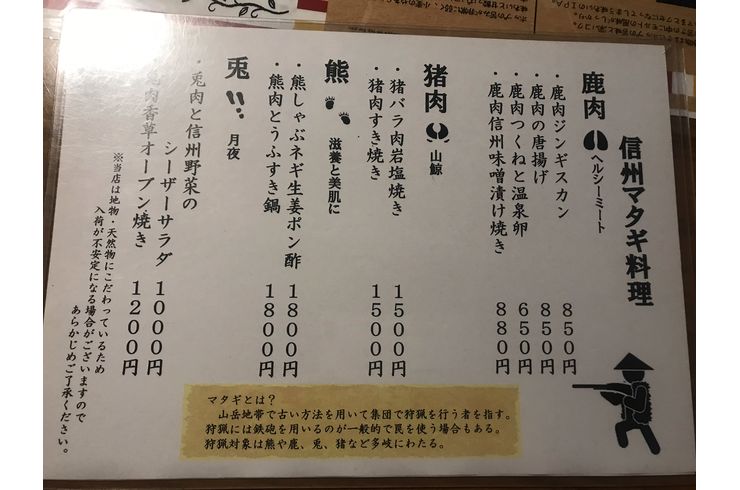 信州マタギ料理
鹿肉 ヘルシーミート
・鹿肉ジンギスカン 850円
・鹿肉の唐揚げ 850円
・鹿肉つくねと温泉卵 650円
・鹿肉信州味噌漬け焼き 880円
猪肉 山鯨
・猪バラ肉岩塩焼き 1500円
・猪肉すき焼き 1500円
熊 滋養と美肌に
・熊しゃぶネギ生姜ポン酢 1800円
・熊肉とうふすき鍋 1800円
兎 月夜
・兎肉と信州野菜の
シーザーサラダ 1000円
肉香草オーブン焼き 1200円
※当店は地物・天然物にこだわっているため
入荷が不安定になる場合がございますので
あらかじめご了承ください。
マタギとは?
山岳地帯で古い方法を用いて集団で狩猟を行う者を指す。
狩猟には鉄砲を用いるのが一般的で罠を使う場合もある。
狩猟対象は熊や鹿、兎、猪など多岐にわたる。